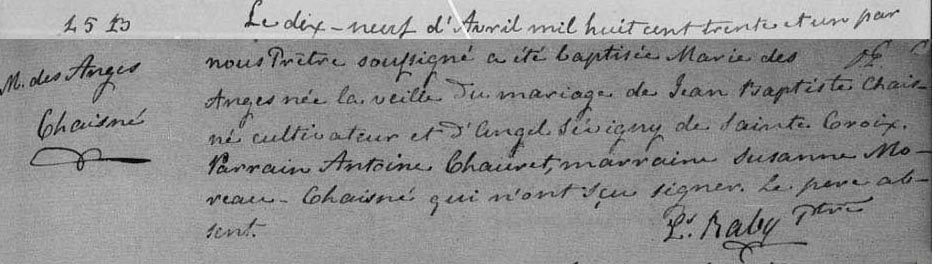 25 B
Le dix-neuf d'Avril mil huit cent trente et un par
M. des Anges
Chaisné
nous Prêtre soussigné a été baptisée Marie des
Anges née la veille du mariage de Jean Baptiste Chais-
né cultivateur et d'Angel Sévigny de Sainte Croix.
Parrain Antoine Chauret, marraine Susanne Mo-
reau-Chaisné qui n'ont sçu signer. Le pere ab-
sent.
Ls. Raby Ptre